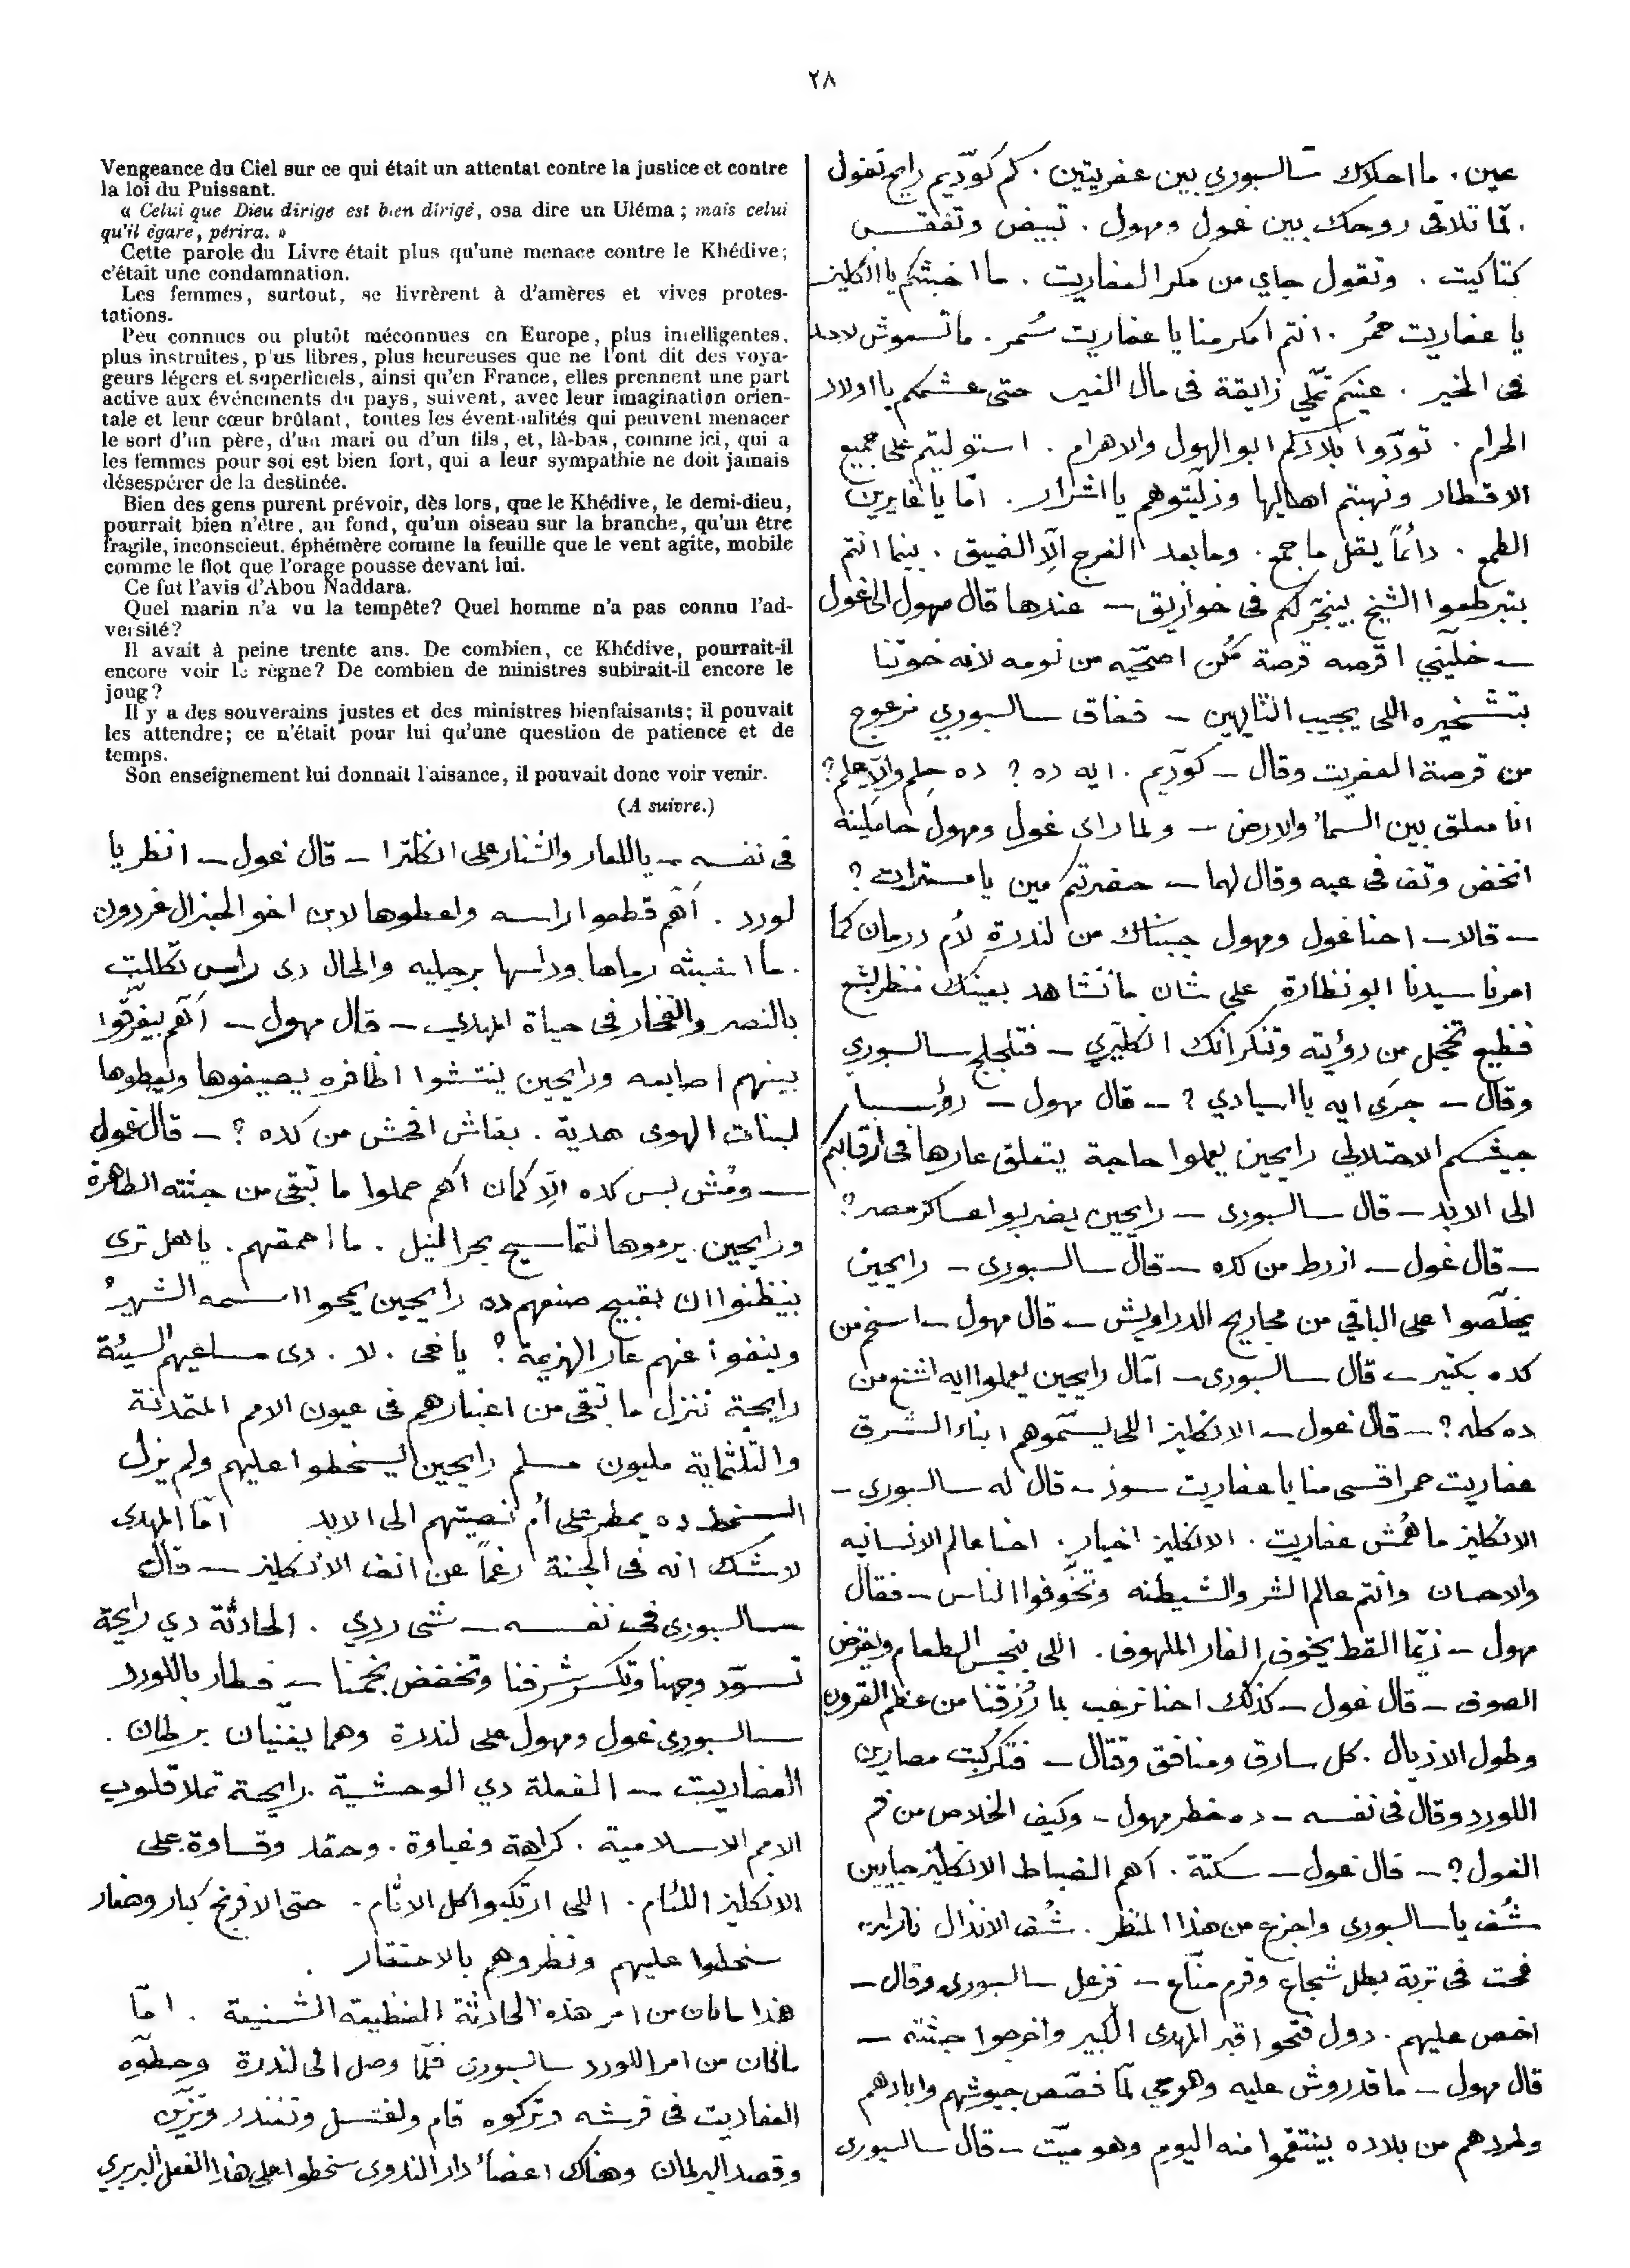 ٢٨
Vengeance du Ciel sur ce qui était un attentat contre la justice et contre
la loi du Puissant.
« Celui que Dieu dirige est bien dirigé, osa dire un Uléma ; mais celui
qu'il égare, périra. »
Cette parole du Livre était plus qu'une menace contre le Khédive;
c'était une condamnation.
Les femmes, surtout, se livrèrent à d'amères et vives protes-
tations.
Peu connues ou plutôt méconnues en Europe, plus intelligentes,
plus instruites, plus libres, plus heureuses que ne l'ont dit des voya-
geurs légers et superficiels, ainsi qu'en France, elles prennent une part
active aux événements du pays, suivent, avec leur imagination orien-
tale et leur cœur brûlant, toutes les éventualités qui peuvent menacer
le sort d'un père, d'un mari ou d'un fils, et, là-bas, comme ici, qui a
les femmes pour soi est bien fort, qui a leur sympathie ne doit jamais
désespérer de la destinée.
Bien des gens purent prévoir, dès lors, que le Khédive, le demi-dieu,
pourrait bien n'être, au fond, qu'un oiseau sur la branche, qu'un être
fragile, inconscient, éphémère comme la feuille que le vent agite, mobile
comme le flot que l'orage pousse devant lui.
Ce fut l'avis d'Abou Naddara.
Quel marin n'a vu la tempête? Quel homme n'a pas connu l'ad-
versité?
Il avait à peine trente ans. De combien, ce Khédive, pourrait-il
encore voir le règne? De combien de ministres subirait-il encore le
joug?
Il y a des souverains justes et des ministres bienfaisants; il pouvait
les attendre; ce n'était pour lui qu'une question de patience et de
temps.
Son enseignement lui donnait l'aisance, il pouvait donc voir venir.
(A suivre.)
عين . ما احلاك سالسبوري بين عفريتين . كم كودّيم رايح تقول
. لمّا تلاقى روحك بين غول ومهول . تبيض وتفقس
كتاكيت . وتقول جاي من مكر العفاريت . ما اخبثكم يا انكليز
يا عفاريت حمُر . انتم امكر منا يا عفاريت سُمر . ما تسعوش لاحد
فى الخير . عينكم تملّي زايغة فى مال الغير حتى عشمكم يا اولاد
الحرام . تودّوا بلادكم ابو الهول والاهرام . استوليتم على جميع
الاقطار ونهبتم اهاليها وزليتوهم يا اشرار . امّا يا غايرين
الطمع . دائماً يقل ما جمع . وما بعد الفرج الّا الضيق . بينما انتم
بتبرطعوا الشيخ بينجّر لكم فى خوازيق – عندها قال مهول الى غول
– خلّيني اقرصه قرصة مُمكن اصحّيه من نومه لانه خوّتنا
بتشخيره اللى يجيب التايهين – ففاق سالسبوري مرعوج
من قرصة العفريت وقال – كودّيم . ايه ده ؟ ده حِلم والّا عِلم ؟
انا معلق بين السماء والارض – ولما راى غول ومهول حاملينه
انخض وتف فى عبه وقال لهما – حضرتكم مين يا مسترات ؟
– قالا – احنا غول ومهول جيبناك من لندرة لأم درمان كما
امرنا سيدنا ابو نظارة على شان ما تشاهد بعينك منظر بشع
فظيع تخجل من رؤيته وتنكر انك انكليزي – فتلجلج سالسبوري
وقال – جرَى ايه يا اسيادي ؟ – قال مهول – رؤسا
جيشكم الاحتلالي رايحين يعملوا حاجة يتعلق عارها فى ارقابكم
الى الابد – قال سالسبورى – رايحين يضربوا عساكر مصر ؟
– قال غول – ازرط من كده – قال سالسبورى – رايحين
يخلّصوا على الباقي من مجاريح الدراويش – قال مهول – اسخم من
كده بكتير – قال سالسبورى – امّال رايحين يعملوا ايه اشنع من
ده كله ؟ – قال غول – الانكليز اللى يسمّوهم ابناء الشرق
عفاريت حمر اقسى منا يا عفاريت سود – قال له سالسبورى –
الانكليز ما هُمش عفاريت . الانكليز اخيار . احنا عالم الانسانيه
والاحسان وانتم عالم الشر والشيطنه وتخوّفوا الناس – فقال
مهول – زيّما القط يخوف الفار الملهوف . اللى ينجس الطعام ويقرض
الصوف – قال غول – كذلك احنا نرعب بما رُزقنا من عظم القرون
وطول الاذيال . كل سارق ومنافق وقتال – فتكركبت مصارين
اللورد وقال فى نفسه – ده خطر مهول – وكيف الخلاص من فم
الغول ؟ – قال غول – سكتة . أهم الضباط الانكليز جايين
شُف يا سالسبورى واجزع من هذا المنظر . شُف الانذال نازلين
فحت فى تربة بطل شجاع وقرم منّاع – فزعل سالسبورى وقال –
اخص عليهم . دول فتحوا قبر المهدى الكبير واخرجوا جثته –
قال مهول – ما قدروش عليه وهو حي لمّا خصّص جيوشهم وابادهم
وطردهم من بلاده بينتقموا منه اليوم وهو ميّت – قال سالسبورى
فى نفسه – يا للعار والشنار على انكلترا – قال غول – انظر يا
لورد . أهم قطعوا راسه واعطوها لابن اخو الجنرال غوردون
. ما اخبثه رماها وداسها برجليه والحال دى راس تكللت
بالنصر والفخار فى حياة المهدي – قال مهول – أهم بيفرّقوا
بينهم اصابعه ورايحين ينتشوا اظافره يصيغوها ويعطوها
لبنات الهوى هدية . بقاش افحش من كده ؟ – قال غول
– ومُش بس كده الّا كمان أهم حملوا ما تبقى من جثته الطاهرة
ورايحين يرموها لتماسيح بحر النيل . ما أحمقهم . يا هل ترى
بيظنوا ان بقبيح صنعهم ده رايحين يمحوا اسمه الشهير
وينفوا عنهم عار الهزيمة ؟ يا خى . لا . دى مساعيهم السيئة
رايحة تنزل ما تبقى من اعتبارهم فى عيون الامم المتمدنة
والتلثماية مليون مسلم رايحين يسخطوا عليهم ولم يزل
السخط ده يمطر على أم نصيتهم الى الابد أمّا المهدى
لا شك انه فى الجنة رغماً عن انف الانكليز – قال
سالسبورى فى نفسه – شى ردي . الحادثة دي رايحة
تسوّد وجهنا وتكسر شرفنا وتخفض نجمنا – فطار باللورد
سالسبورى غول ومهول على لندرة وهما يغنّيان برطان .
العفاريت – الفعلة دي الوحشية . رايحة تملا قلوب
الامم الاسلامية . كراهة وغباوة . وحقد وقساوة . على
الانكليز اللئام . اللى ارتكبوا كل الاثام . حتى الافرنج كبار وصغار
سخطوا عليهم ونظروهم بالاحتقار .
هذا ما كان من امر هذه الحادثة الفظيعة الشنيعة . امّا
ما كان من امر اللورد سالسبورى فلمّا وصل الى لندرة وحطّوه
العفاريت فى فرشه وتركوه قام واغتسل وتغندر وتزيّن
وقصد البرلمان وهناك اعضاء دار الندوى سخطوا على هذا الفعل البربري